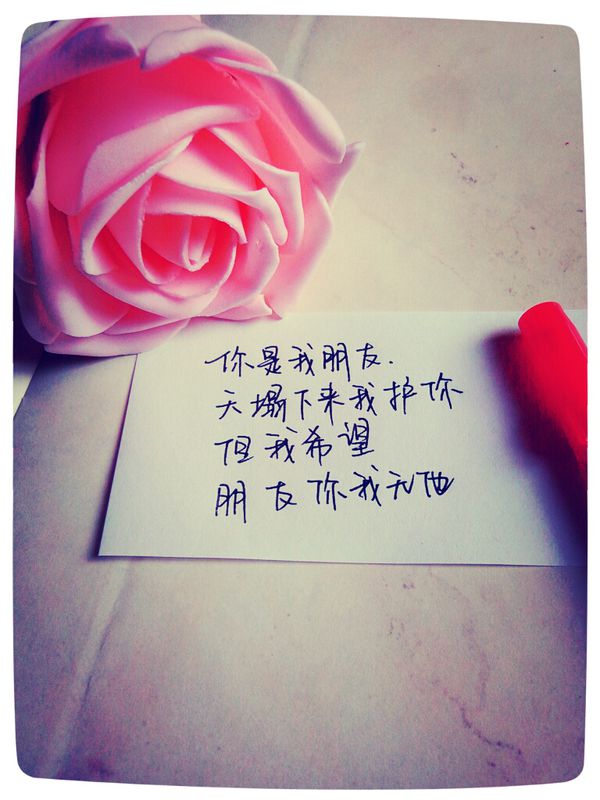 你是我朋友.
天塌下来我护你
但我希望
朋友你我无他